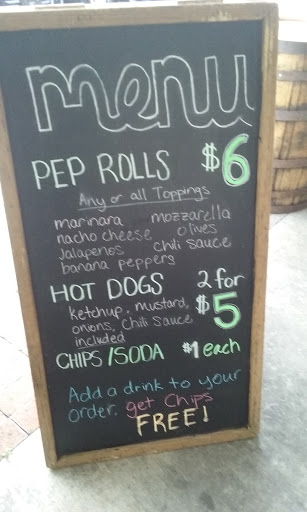 menu
PEP ROLLS $6
Any or all Toppings
marinara mozzarella
nacho cheese olives
Jalapenos chili sauce
banana peppers
HOT DOGS 2 for
ketchup, mustard, $5
onions, chili sauce
included
CHIPS/SODA $1 each
Add a drink to your
order, get Chips
FREE!